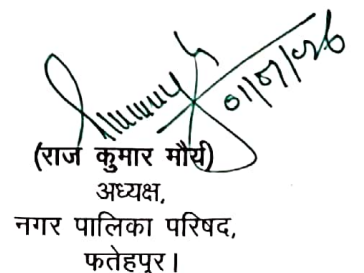 01/07/26
(राज कुमार मौर्य)
अध्यक्ष,
नगर पालिका परिषद,
फतेहपुर।